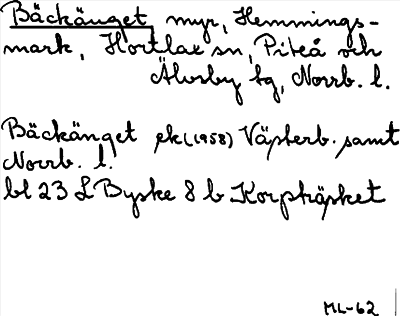 Bäckänget myr, Hemmings-
mark, Hortlax sn, Piteå och
Älvsby tg, Norrb. l.
Bäckänget ek (1958) Västerb. samt
Norrb. l.
bl 23 L Byske 8 b Korpträsket
ML-62